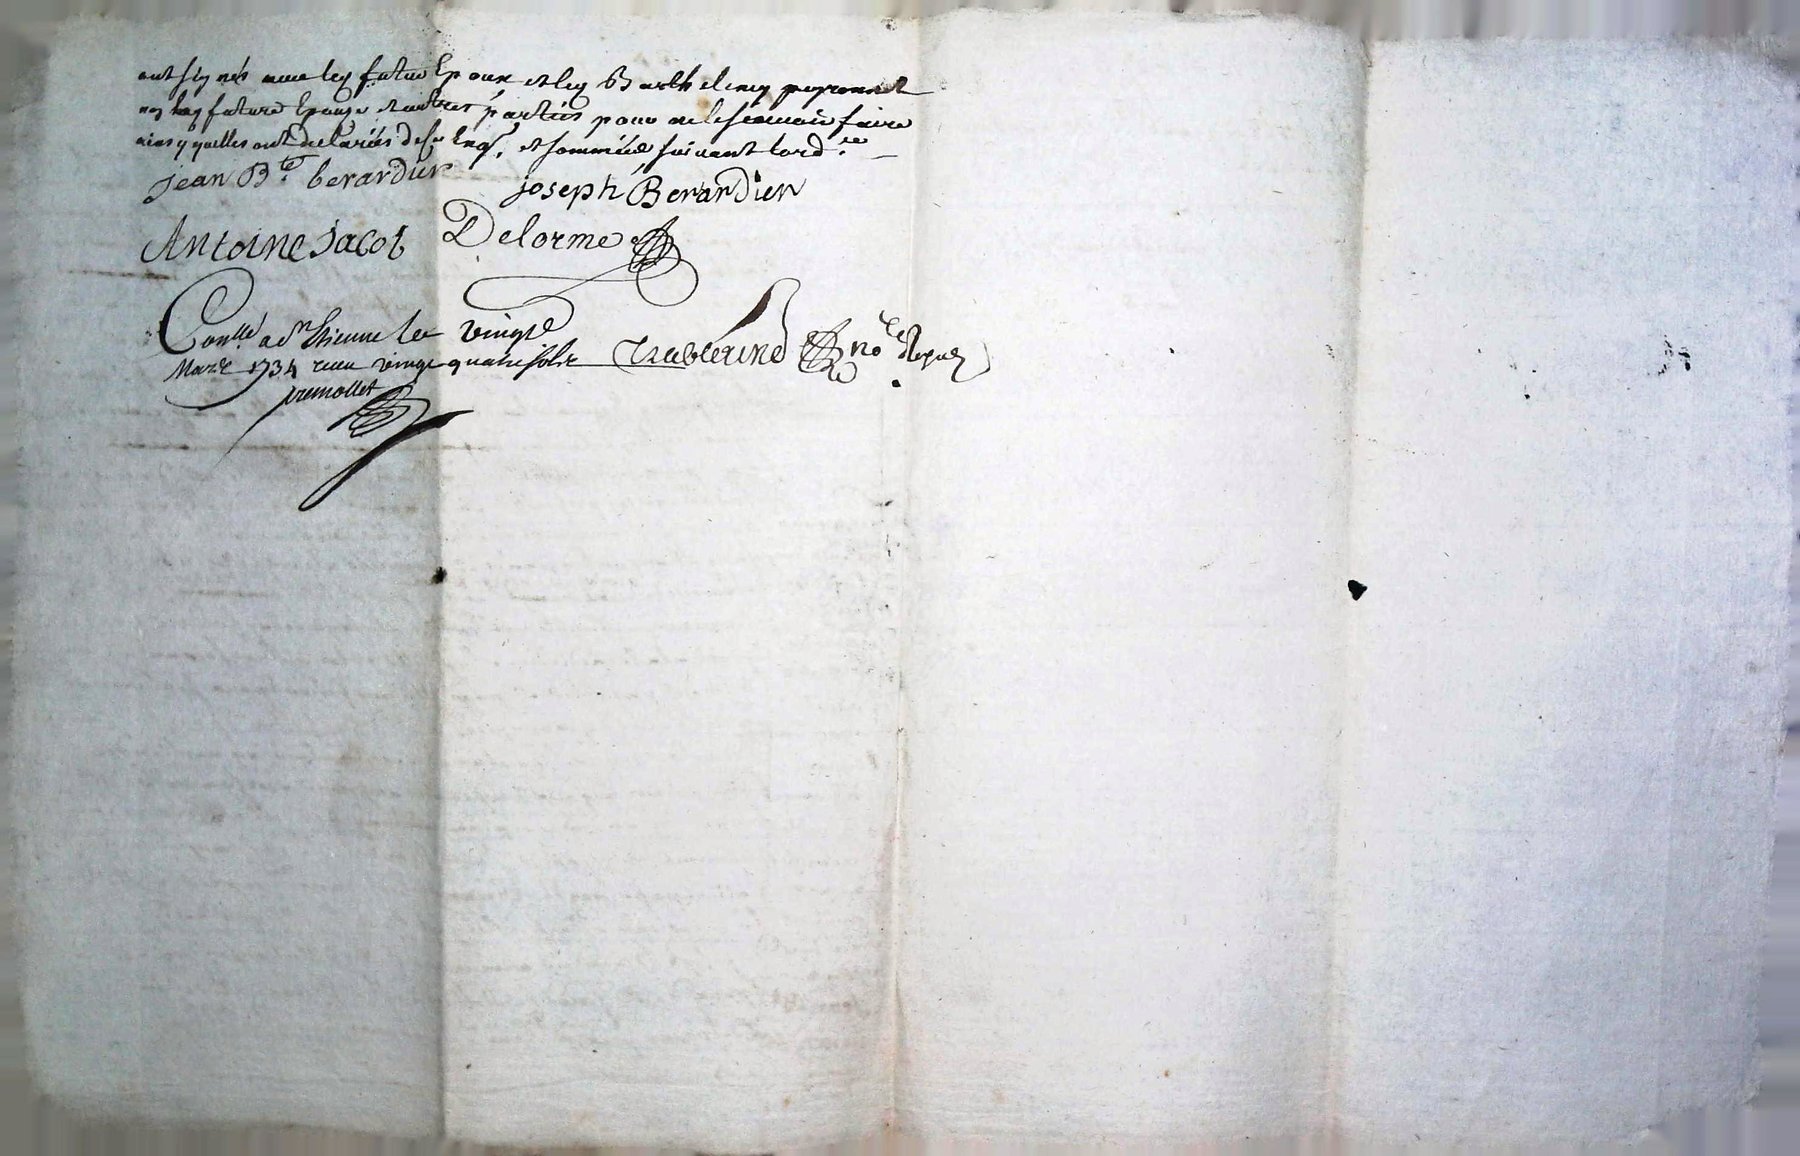 ont signés avec led futur Epoux et led Barthelemy peyronnet
non lad future Epouse et autres parties pour ne le scavoir faire
ainsy quelles ont declarées de ce Enq. et sommées suivant lord.ce
jean B.te berardier joseph Berardier
Antoine Jacob Delorme
Conllé a St Etienne le vingt
Mars 1734 receu vingt quatre sols
premollet
no.re Royal